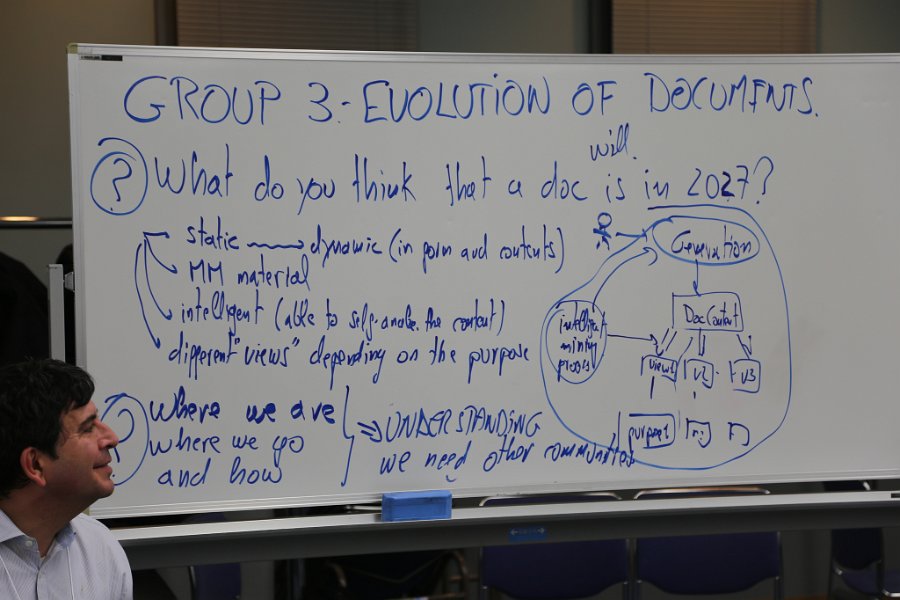 GROUP 3: EVOLUTION OF DOCUMENTS.
will.
? What do you think that a doc is in 2027?
static → dynamic (in form and contents)
MM material
intelligent (able to self-analse. the content)
different "views" depending on the purpose
where we are
where we go
and how
⇒ UNDERSTANDING
we need other communities
Generation
Doc Content
intelligent
mining
process
view1
v2
v3